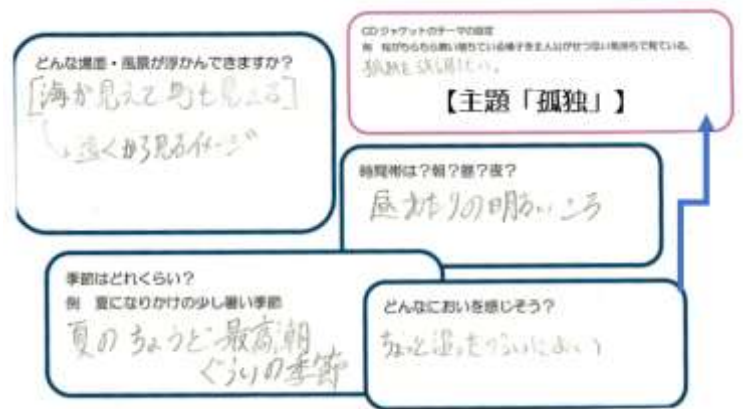 どんな場面・風景が浮かんできますか?
[海が見えて町も見える]
遠くから見るイメージ
CDジャケットのテーマの設定
例 桜がちらちら舞い落ちている様子を主人公がせつない気持ちで見ている。
【主題「孤独」】
時間帯は?朝?昼?夜?
昼あたりの明るいころ
季節はどれくらい?
例 夏になりかけの少し暑い季節
夏のちょうど最高潮
ぐらいの季節
どんなにおいを感じそう?
ちょっと